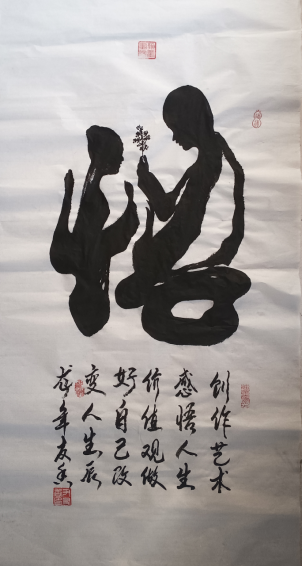 悟
创作艺术
感悟人生
价值观做
好自己改
变人生辰
龙年友